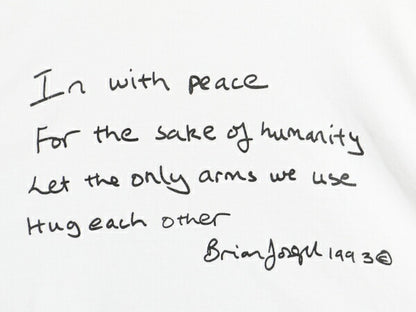 In with peace
For the sake of humanity
Let the only arms we use
Hug each other
Brian Joseph 1993©